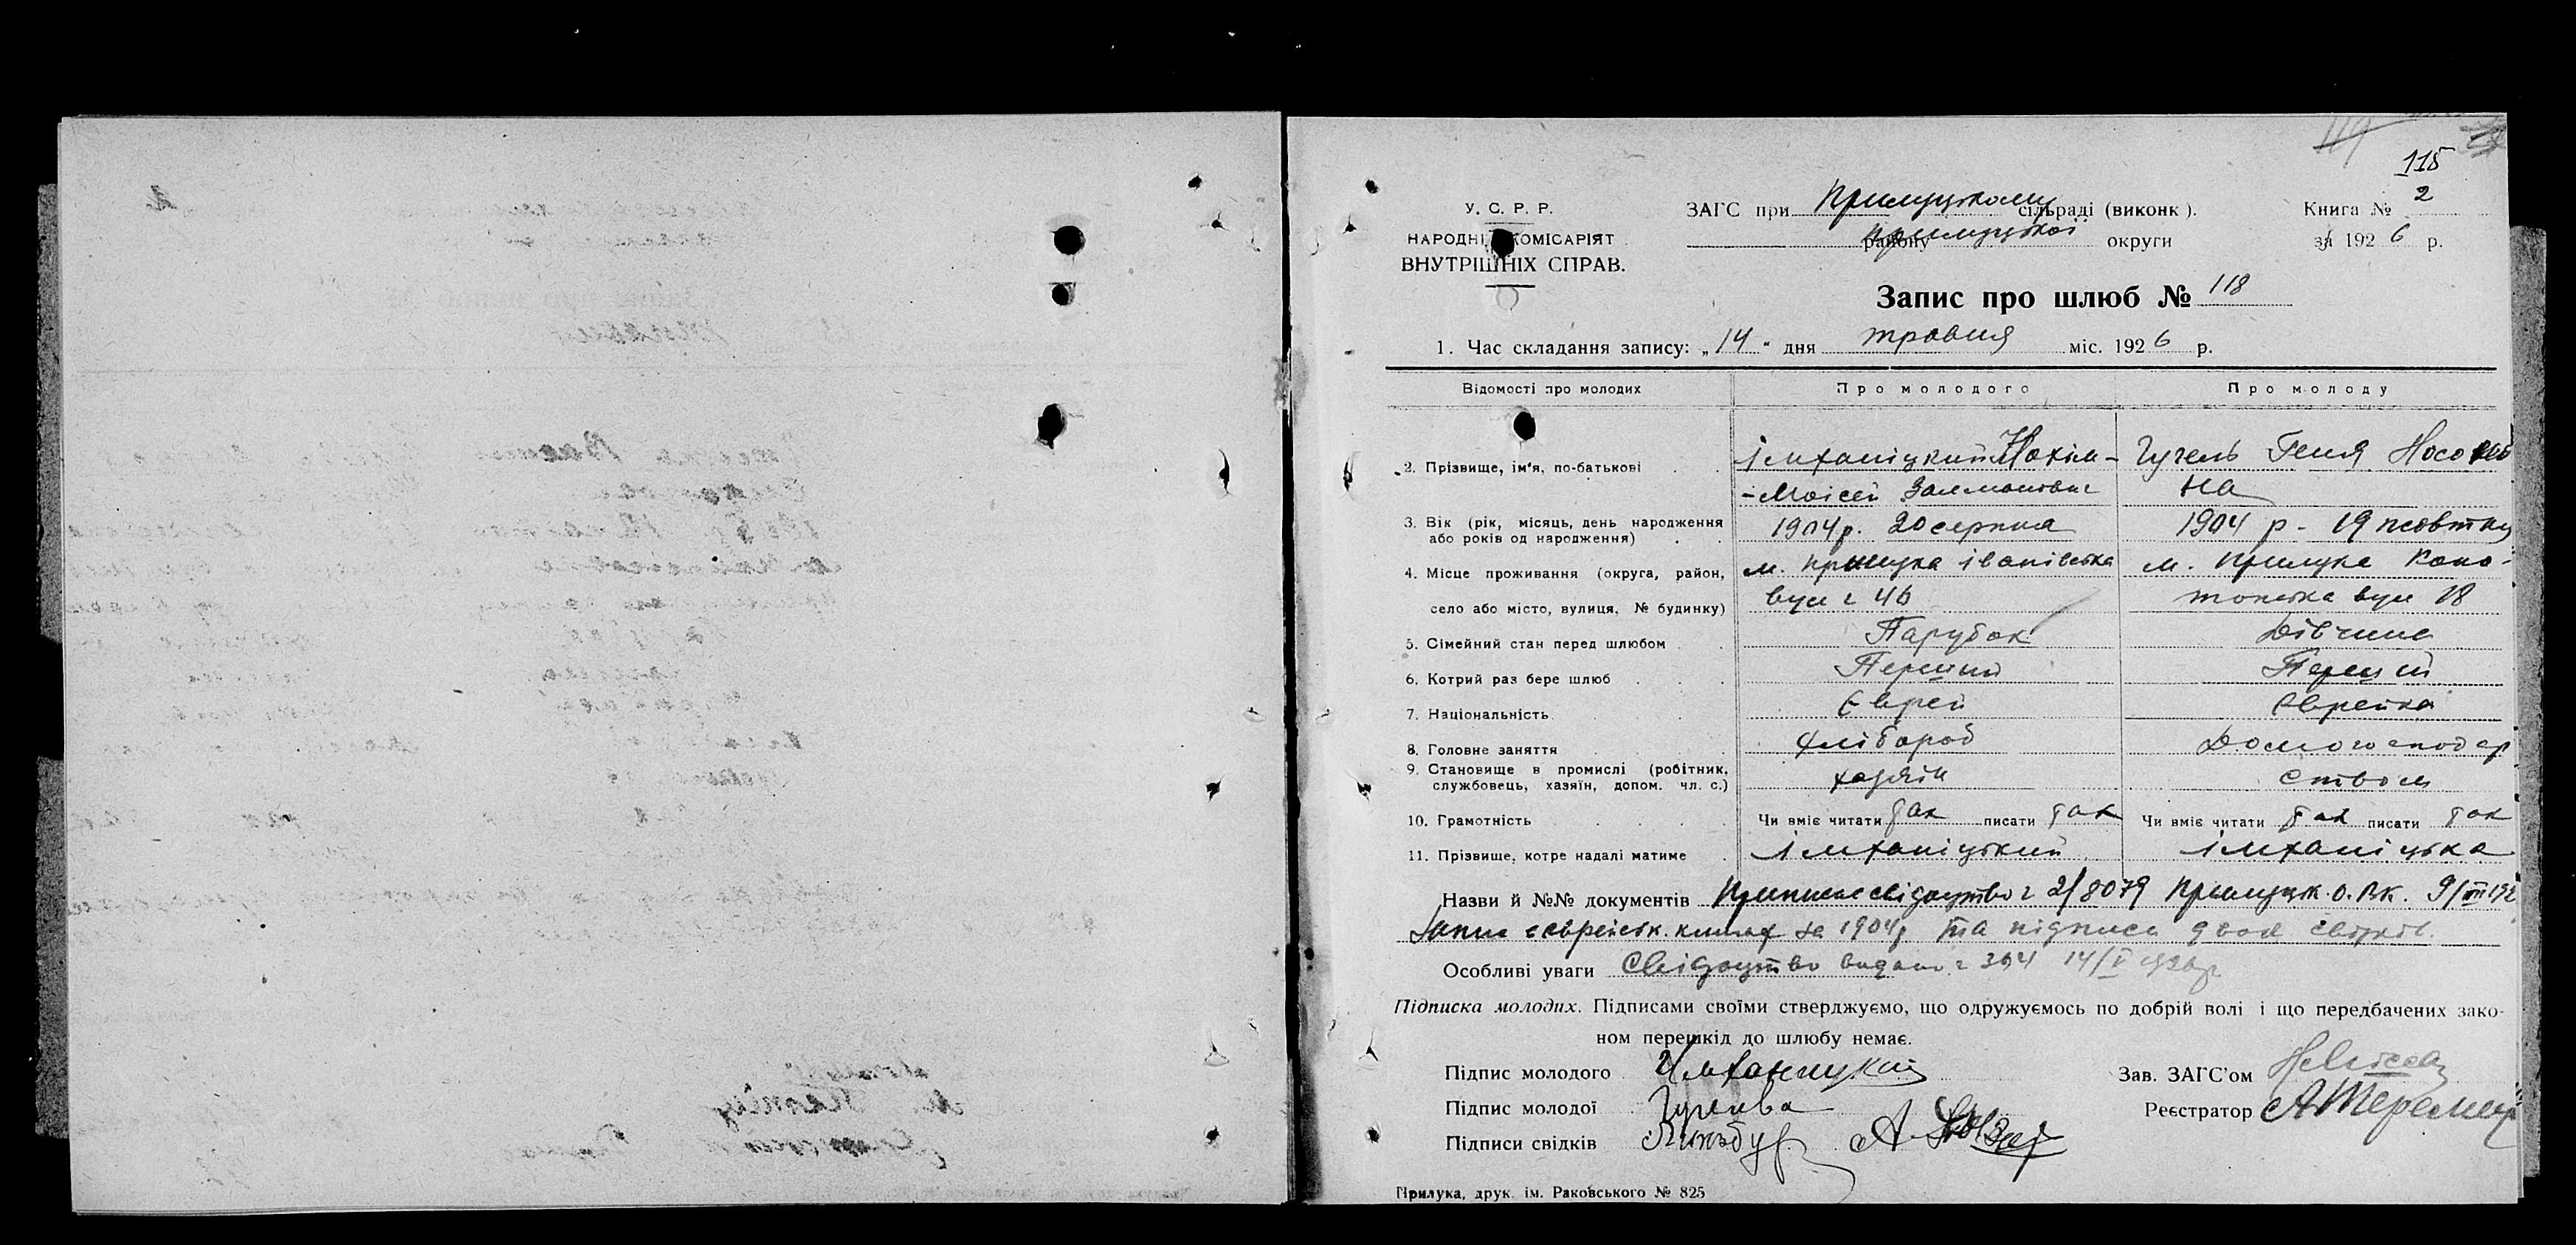 115
У. С. Р. Р.
НАРОДНІЙ КОМІСАРІЯТ
ВНУТРІШНІХ СПРАВ.
ЗАГС при Прилуцькому сільраді (виконк).
району Прилуцької округи
Книга № 2
за 1926 р.
Запис про шлюб № 118
1. Час складання запису: „14“ дня травня міс. 1926 р.
Відомості про молодих Про молодого Про молоду
2. Прізвище, ім'я, по-батькові Імханіцкий Нохім- Гугель Геня Носонов
-Моісей Залманович на
3. Вік (рік, місяць, день народження 1904 р. 20 серпня 1904 р - 19 жовтня
або років од народження)
4. Місце проживання (округа, район, м. Прилука Іванівська м. Прилука Коно-
село або місто, вулиця, № будинку) вул 46 топська вул 18
5. Сімейний стан перед шлюбом Парубок Дівчина
6. Котрий раз бере шлюб Перший Перший
7. Національність Єврей Єврейка
8. Головне заняття Хлібороб Домогосподар
9. Становище в промислі (робітник, хазяїн ством
службовець, хазяїн, допом. чл. с.)
10. Грамотність Чи вміє читати так писати так Чи вміє читати так писати так
11. Прізвище, котре надалі матиме Імханіцький Імханіцька
Назви й №№ документів Приписне свідоцтво 2/8079 Прилуцьк. О.В.К. 9/VII 192
Запис єврейськ. книгах за 1904 р та підписи двох свідків.
Особливі уваги Свідоцтво видано 14/V
Підписка молодих. Підписами своїми стверджуємо, що одружуємось по добрій волі і що передбачених зако-
ном перешкід до шлюбу немає.
Підпис молодого Имханицкий Зав. ЗАГС'ом
Підпис молодої Реєстратор
Підписи свідків
Прилука, друк. ім. Раковського № 825